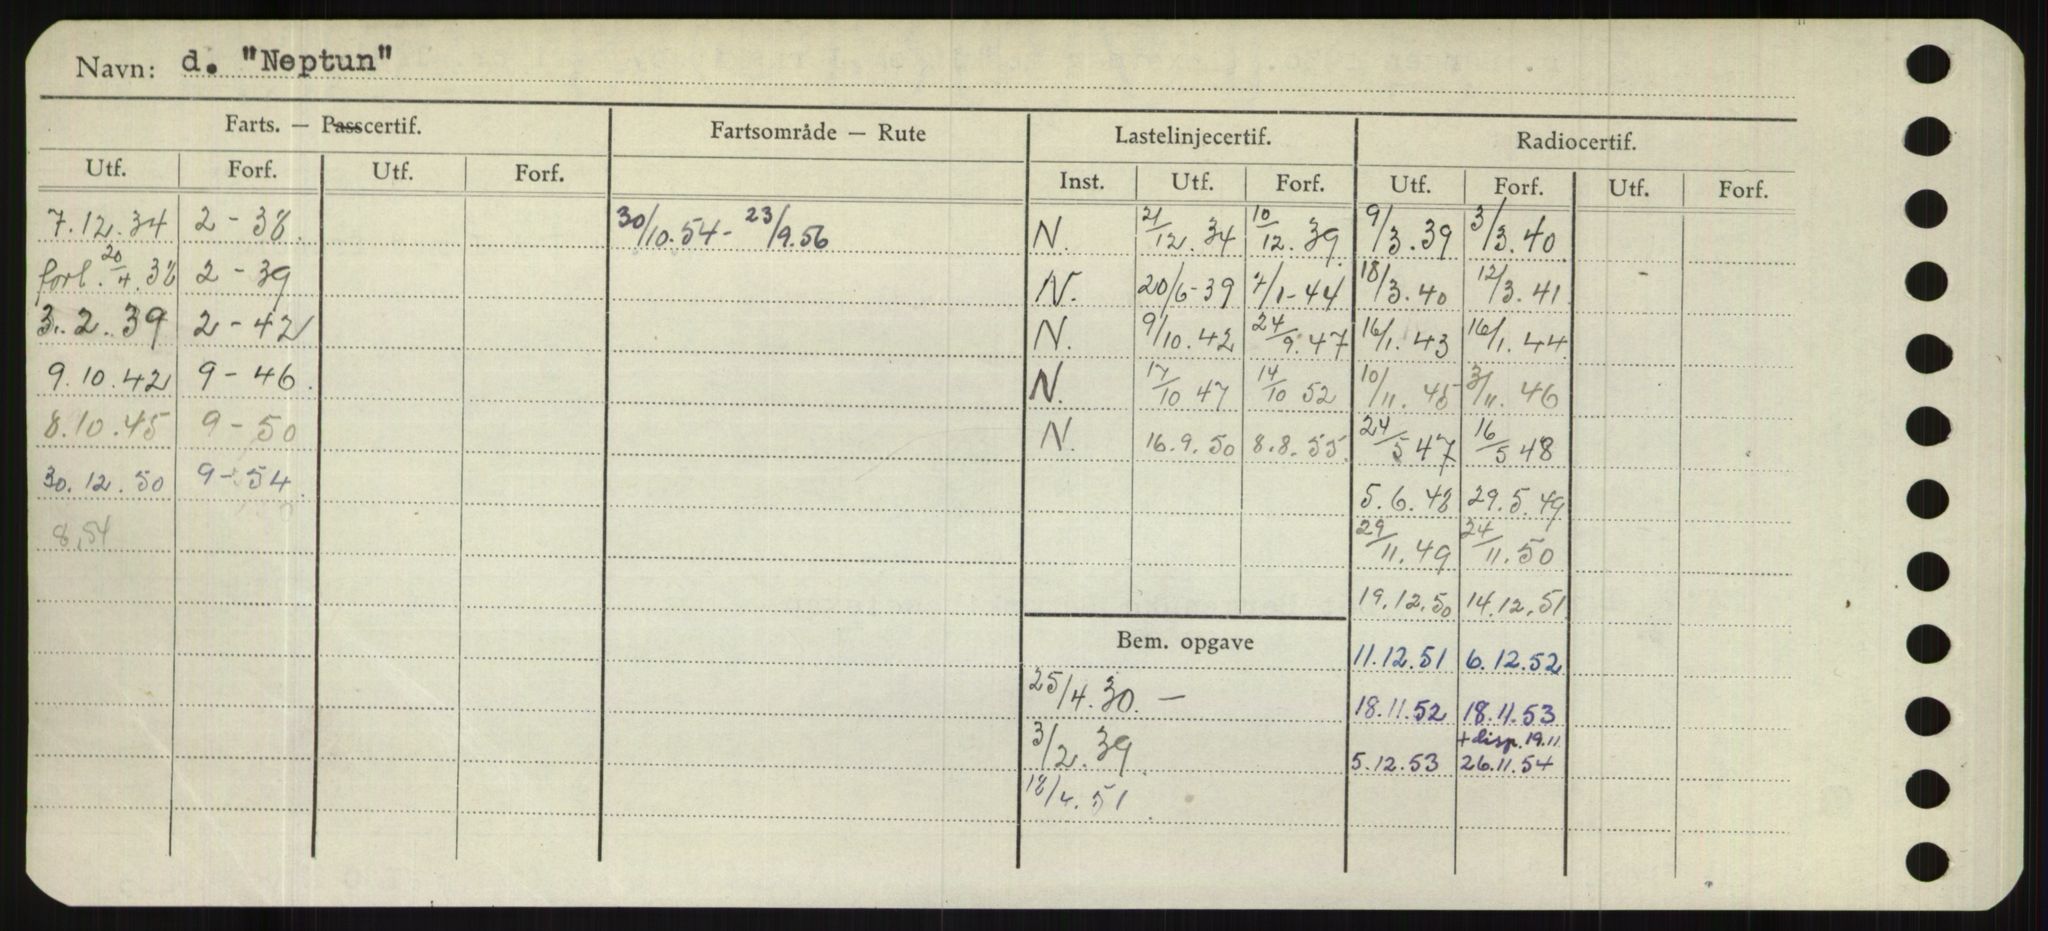 Navn: d. "Neptun"
Farts. — Passcertif. Fartsområde — Rute Lastelinjecertif. Radiocertif.
Utf. Forf. Utf. Forf. Inst. Utf. Forf. Utf. Forf. Utf. Forf.
7.12.34 2 - 38. 30/10.54 - 23/9.56 N. 21/12.34 10/12.39 9/3.39 3/3.40
forl. 20/4.38 2 - 39 N. 20/6-39 /1-44 18/3.40 12/3.41
3.2.39 2 - 42 N. 9/10.42 24/9.47 16/1.43 16/1.44
9.10.42 9 - 46. N. 17/10 47 14/10 52 10/11.45 3/11.46
8.10.45 9 - 50 N. 16.9.50 8.8.55. 24/5 47 16/5 48
30.12.50 9 - 54. 5.6.48 29.5.49
8,54 29/11.49 24/11.50
19.12.50 14.12.51
Bem. opgave 11.12.51 6.12.52
25/4.30. — 18.11.52 18.11.53
+ disp. 19.11
3/2.39 5.12.53 26.11.54
18/4.51